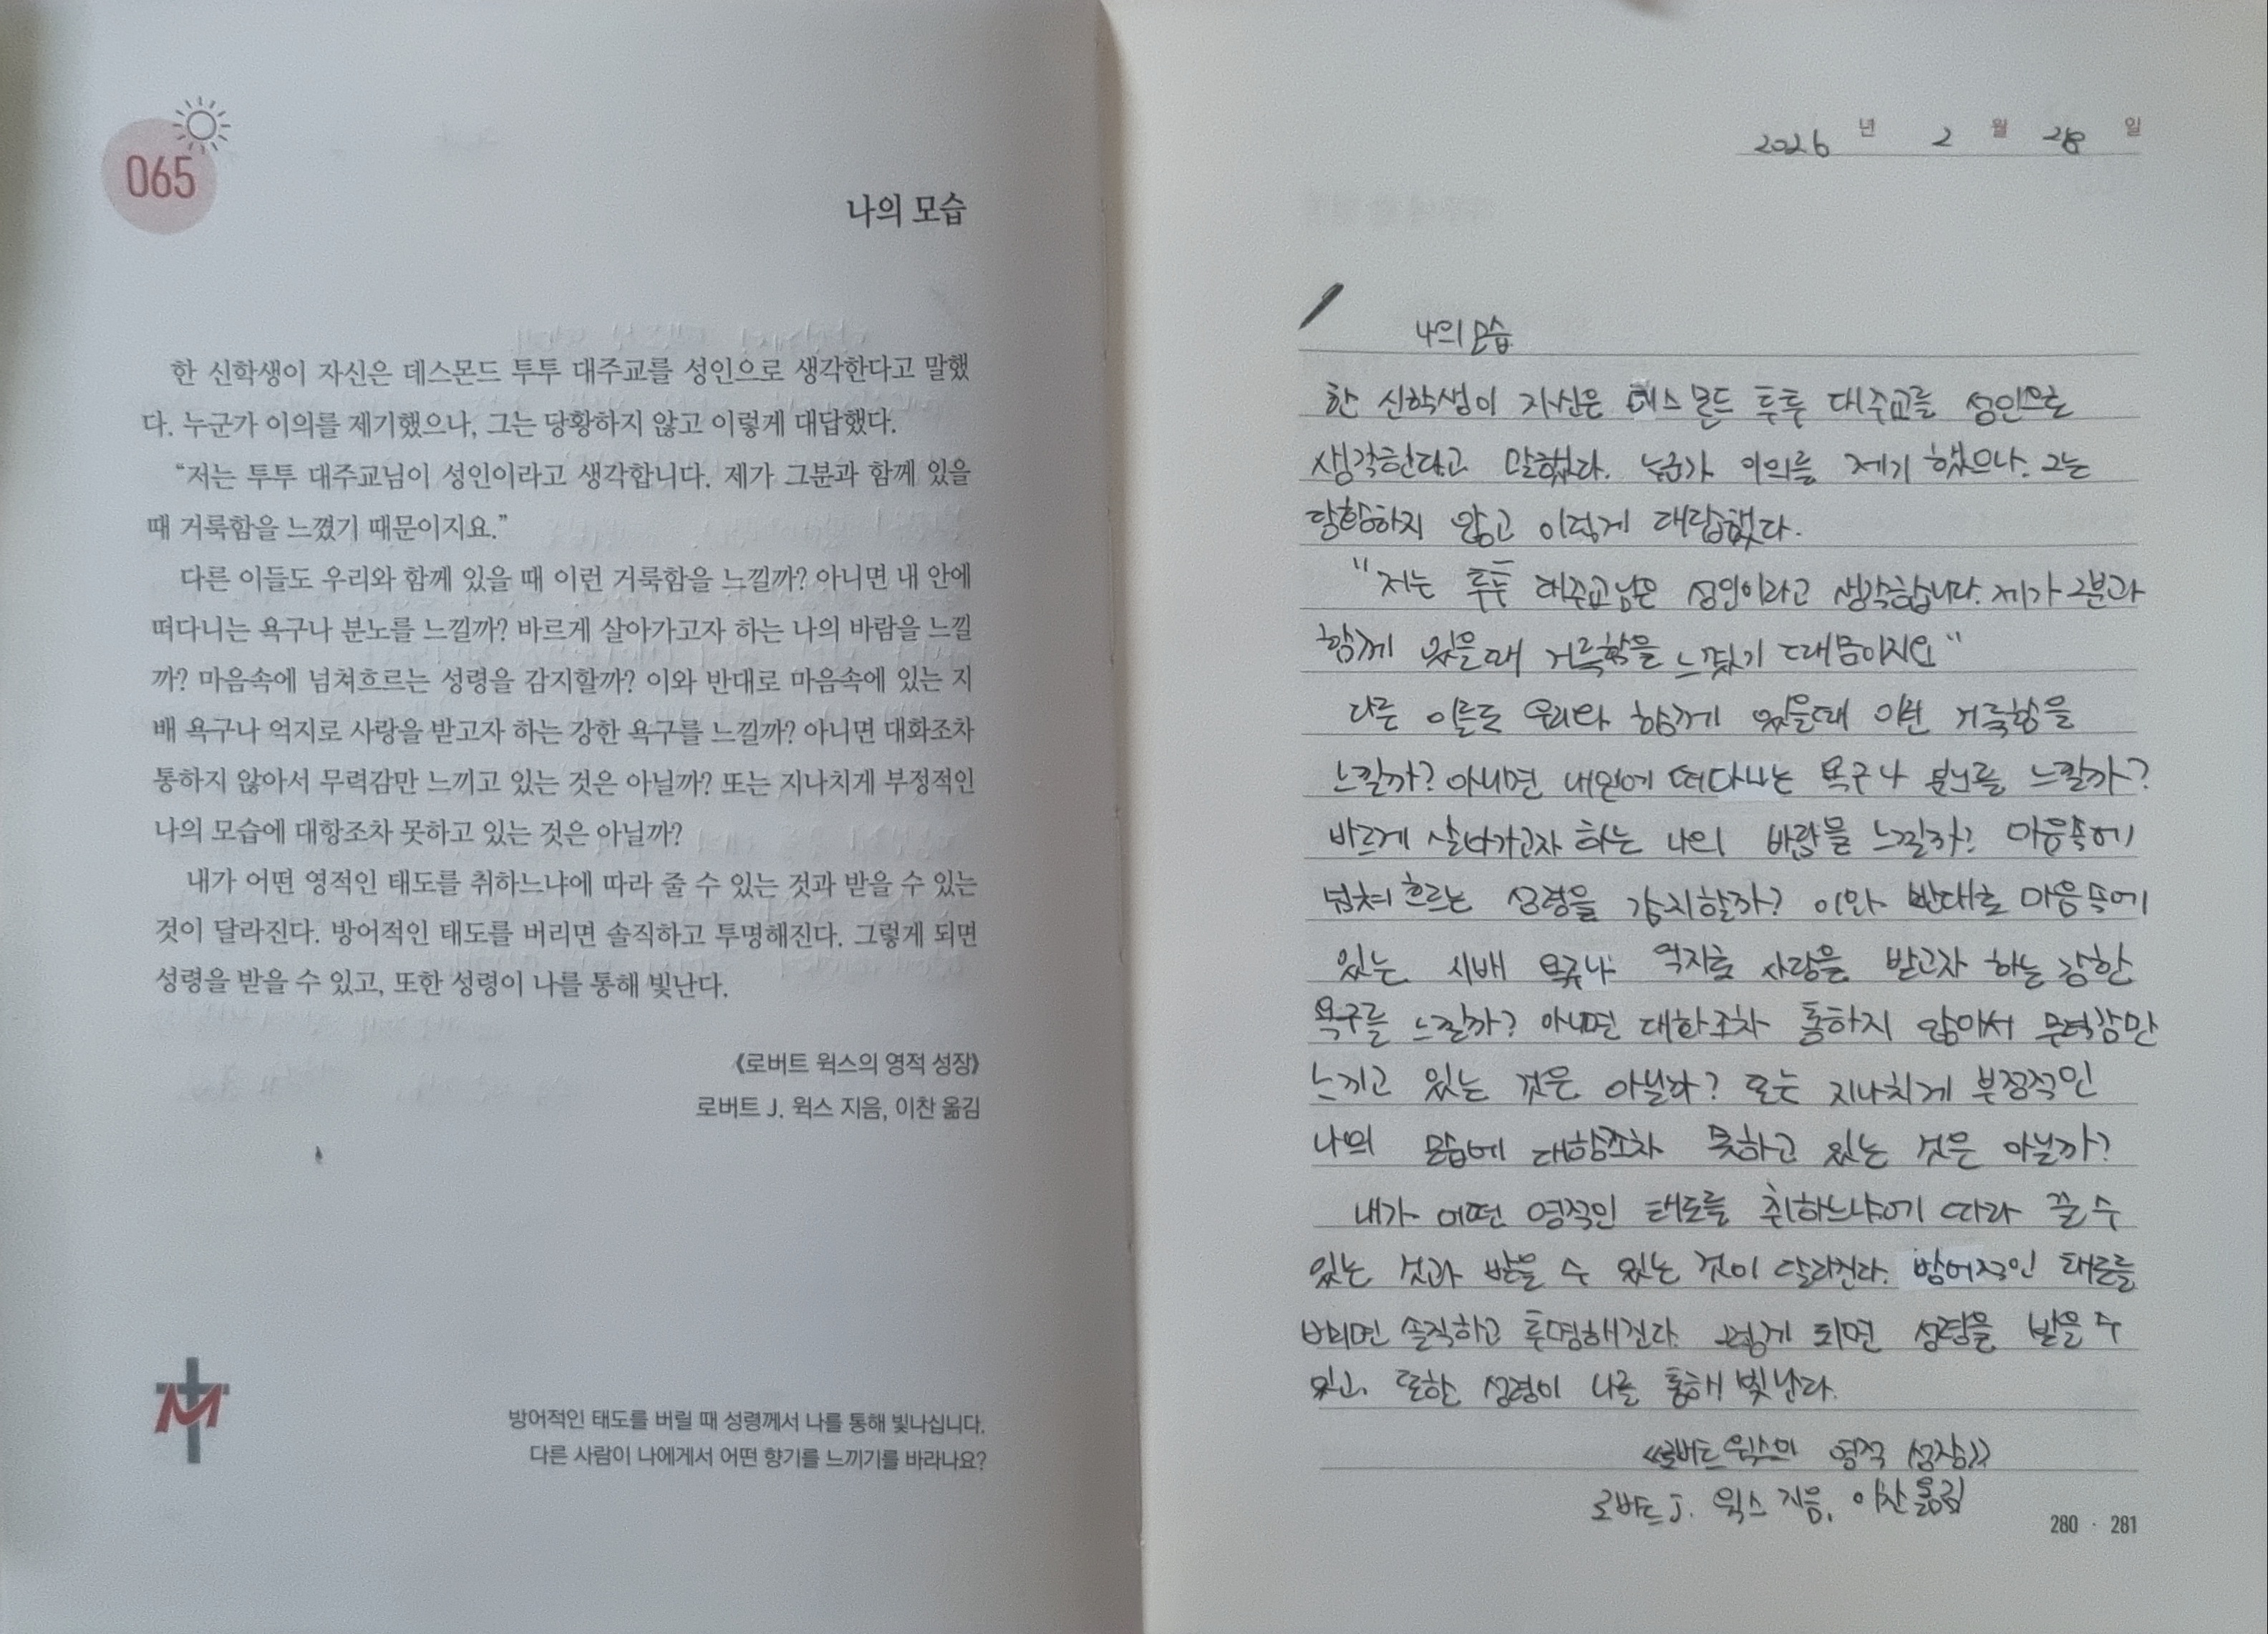 065
나의 모습
한 신학생이 자신은 데스몬드 투투 대주교를 성인으로 생각한다고 말했
다. 누군가 이의를 제기했으나, 그는 당황하지 않고 이렇게 대답했다.
“저는 투투 대주교님이 성인이라고 생각합니다. 제가 그분과 함께 있을
때 거룩함을 느꼈기 때문이지요.”
다른 이들도 우리와 함께 있을 때 이런 거룩함을 느낄까? 아니면 내 안에
떠다니는 욕구나 분노를 느낄까? 바르게 살아가고자 하는 나의 바람을 느낄
까? 마음속에 넘쳐흐르는 성령을 감지할까? 이와 반대로 마음속에 있는 지
배 욕구나 억지로 사랑을 받고자 하는 강한 욕구를 느낄까? 아니면 대화조차
통하지 않아서 무력감만 느끼고 있는 것은 아닐까? 또는 지나치게 부정적인
나의 모습에 대항조차 못하고 있는 것은 아닐까?
내가 어떤 영적인 태도를 취하느냐에 따라 줄 수 있는 것과 받을 수 있는
것이 달라진다. 방어적인 태도를 버리면 솔직하고 투명해진다. 그렇게 되면
성령을 받을 수 있고, 또한 성령이 나를 통해 빛난다.
《로버트 윅스의 영적 성장》
로버트 J. 윅스 지음, 이찬 옮김
M
방어적인 태도를 버릴 때 성령께서 나를 통해 빛나십니다.
다른 사람이 나에게서 어떤 향기를 느끼기를 바라나요?
2026 년 2 월 28 일
나의 모습
한 신학생이 자신은 데스몬드 투투 대주교를 성인으로
생각한다고 말했다. 누군가 이의를 제기 했으나. 그는
당황하지 않고 이렇게 대답했다.
"저는 투투 대주교님은 성인이라고 생각합니다. 제가 그분과
함께 있을때 거룩함을 느꼈기 때문이지요"
다른 이들도 우리와 함께 있을때 이런 거룩함을
느낄까? 아니면 내안에 떠다니는 욕구나 분노를 느낄까?
바르게 살아가고자 하는 나의 바람을 느낄까? 마음속에
넘쳐흐르는 성령을 감지할까? 이와 반대로 마음속에
있는 지배 욕구나 억지로 사랑을 받고자 하는 강한
욕구를 느낄까? 아니면 대화조차 통하지 않아서 무력감만
느끼고 있는 것은 아닐까? 또는 지나치게 부정적인
나의 모습에 대항조차 못하고 있는 것은 아닐까?
내가 어떤 영적인 태도를 취하느냐에 따라 줄 수
있는 것과 받을 수 있는 것이 달라진다. 방어적인 태도를
버리면 솔직하고 투명해진다. 그렇게 되면 성령을 받을 수
있고, 또한 성령이 나를 통해 빛난다.
《로버트 윅스의 영적 성장》
로버트 J. 윅스 지음, 이찬 옮김
280 · 281